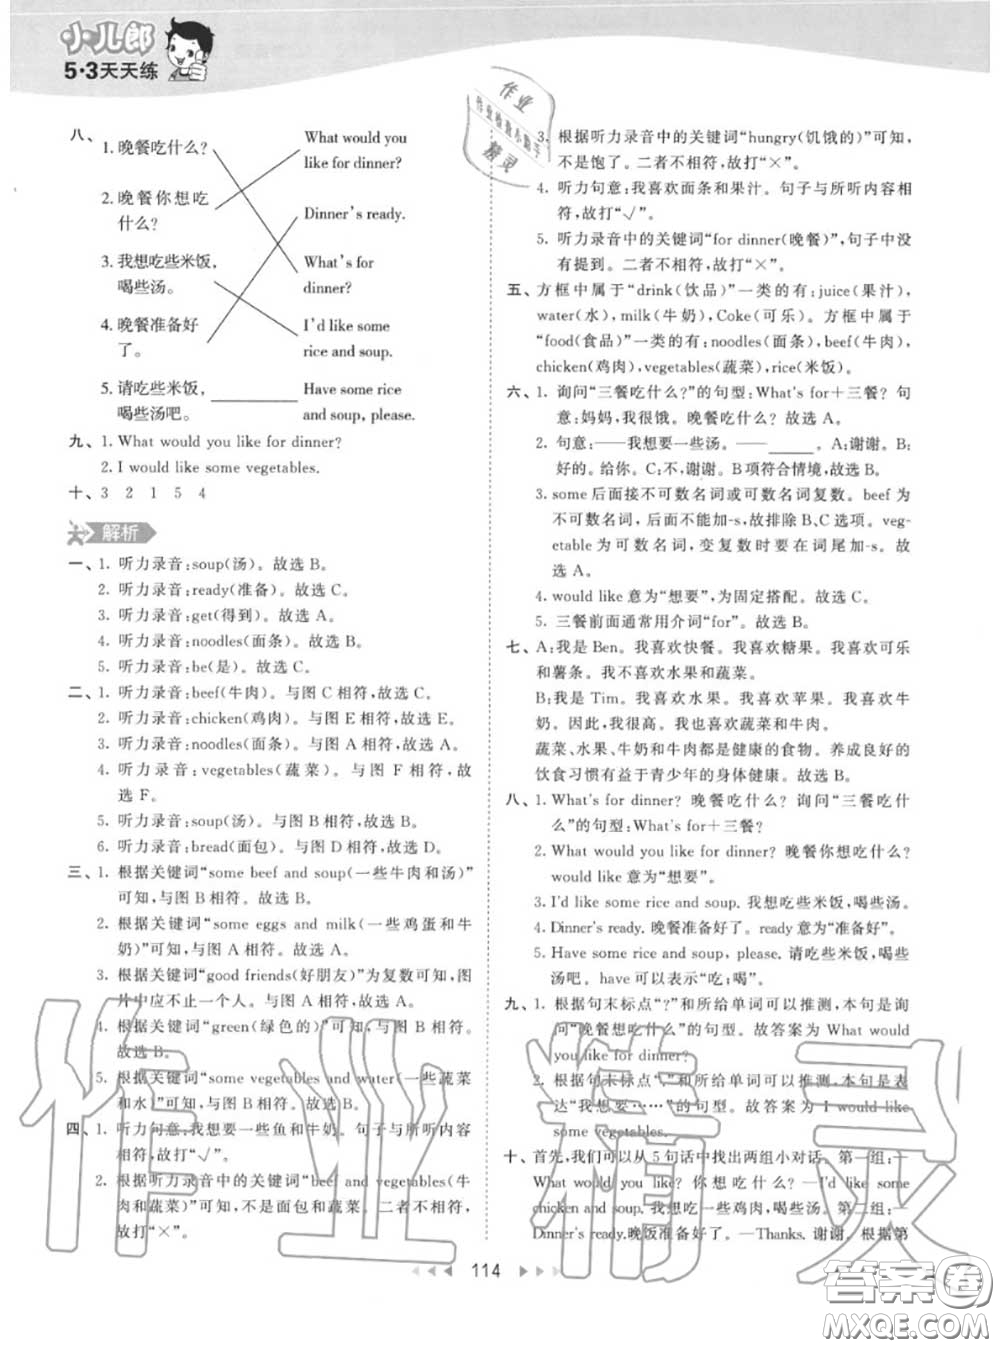 小儿郎
5·3天天练
八、1. 晚餐吃什么?
What would you
like for dinner?
2. 晚餐你想吃
什么?
Dinner's ready.
3. 我想吃些米饭,
喝些汤。
What's for
dinner?
4. 晚餐准备好
了。
I'd like some
rice and soup.
5. 请吃些米饭,
喝些汤吧。
Have some rice
and soup, please.
九、1. What would you like for dinner?
2. I would like some vegetables.
十、3 2 1 5 4
解析
一、1. 听力录音:soup(汤)。故选 B。
2. 听力录音:ready(准备)。故选 C。
3. 听力录音:get(得到)。故选 A。
4. 听力录音:noodles(面条)。故选 B。
5. 听力录音:be(是)。故选 C。
二、1. 听力录音:beef(牛肉)。与图 C 相符,故选 C。
2. 听力录音:chicken(鸡肉)。与图 E 相符,故选 E。
3. 听力录音:noodles(面条)。与图 A 相符,故选 A。
4. 听力录音:vegetables(蔬菜)。与图 F 相符,故
选 F。
5. 听力录音:soup(汤)。与图 B 相符,故选 B。
6. 听力录音:bread(面包)。与图 D 相符,故选 D。
三、1. 根据关键词“some beef and soup(一些牛肉和汤)”
可知,与图 B 相符。故选 B。
2. 根据关键词“some eggs and milk(一些鸡蛋和牛
奶)”可知,与图 A 相符。故选 A。
3. 根据关键词“good friends(好朋友)”为复数可知,图
片中应不止一个人。与图 A 相符。故选 A。
4. 根据关键词“green(绿色的)”可知,与图 B 相符。
故选 B。
5. 根据关键词“some vegetables and water(一些蔬菜
和水)”可知,与图 A 相符。故选 A。
四、1. 听力句意:我想要一些鱼和牛奶。句子与所听内容
相符,故打“√”。
2. 根据听力录音中的关键词“beef and vegetables(牛
肉和蔬菜)”可知,不是面包和蔬菜。二者不相符,
故打“×”。
作业
作业检查小助手
精灵
3. 根据听力录音中的关键词“hungry(饥饿的)”可知,
不是饱了。二者不相符,故打“×”。
4. 听力句意:我喜欢面条和果汁。句子与所听内容相
符,故打“√”。
5. 听力录音中的关键词“for dinner(晚餐)”,句子中没
有提到。二者不相符,故打“×”。
五、方框中属于“drink(饮品)”一类的有:juice(果汁),
water(水),milk(牛奶),Coke(可乐)。方框中属于
“food(食品)”一类的有:noodles(面条),beef(牛肉),
chicken(鸡肉),vegetables(蔬菜),rice(米饭)。
六、1. 询问“三餐吃什么?”的句型:What's for+三餐?句
意:妈妈,我很饿。晚餐吃什么?故选 A。
2. 句意:——我想要一些汤。——______。A:谢谢。B:
好的。给你。C:不,谢谢。B 项符合情境,故选 B。
3. some 后面接不可数名词或可数名词复数。beef 为
不可数名词,后面不能加-s,故排除 B、C 选项。veg-
etable 为可数名词,变复数时要在词尾加-s。故
选 A。
4. would like 意为“想要”,为固定搭配。故选 C。
5. 三餐前面通常用介词“for”。故选 B。
七、A:我是 Ben。我喜欢快餐。我喜欢糖果。我喜欢可乐
和薯条。我不喜欢水果和蔬菜。
B:我是 Tim。我喜欢水果。我喜欢苹果。我喜欢牛
奶。因此,我很高。我也喜欢蔬菜和牛肉。
蔬菜、水果、牛奶和牛肉都是健康的食物。养成良好的
饮食习惯有益于青少年的身体健康。故选 B。
八、1. What's for dinner? 晚餐吃什么?询问“三餐吃什
么”的句型:What's for+三餐?
2. What would you like for dinner? 晚餐你想吃什么?
would like 意为“想要”。
3. I'd like some rice and soup. 我想吃些米饭,喝些汤。
4. Dinner's ready. 晚餐准备好了。ready 意为“准备好”。
5. Have some rice and soup, please. 请吃些米饭,喝些
汤吧。have 可以表示“吃;喝”。
九、1. 根据句末标点“?”和所给单词可以推测,本句是询
问“晚餐想吃什么”的句型。故答案为 What would
you like for dinner?
2. 根据句末标点“.”和所给单词可以推测,本句是表
达“我想要……”的句型。故答案为 I would like
some vegetables.
十、首先,我们可以从 5 句话中找出两组小对话。第一组:—
What would you like? 你想吃什么?—Some
chicken and soup. 我想吃一些鸡肉,喝些汤。第二组:
Dinner's ready.晚饭准备好了。—Thanks. 谢谢。根据第
114
作业精灵
答案卷
MXQE.COM